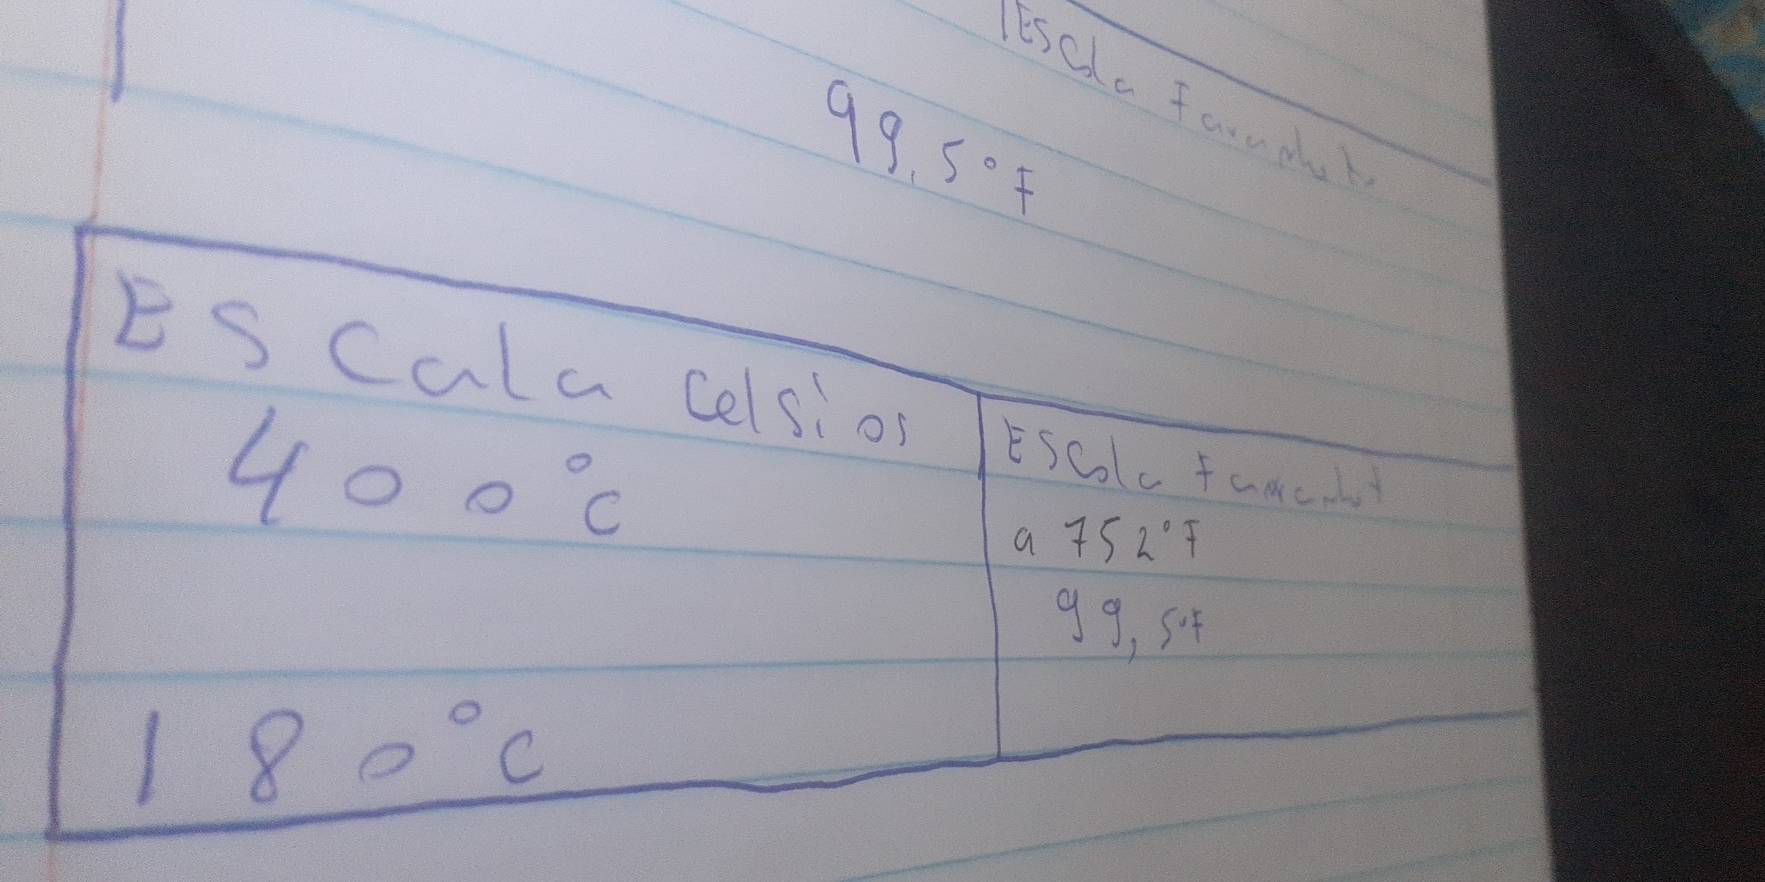 Escala
99,5°F
Escala Celsios
400°C
180°C
Escala
a 752°F
99,5°F